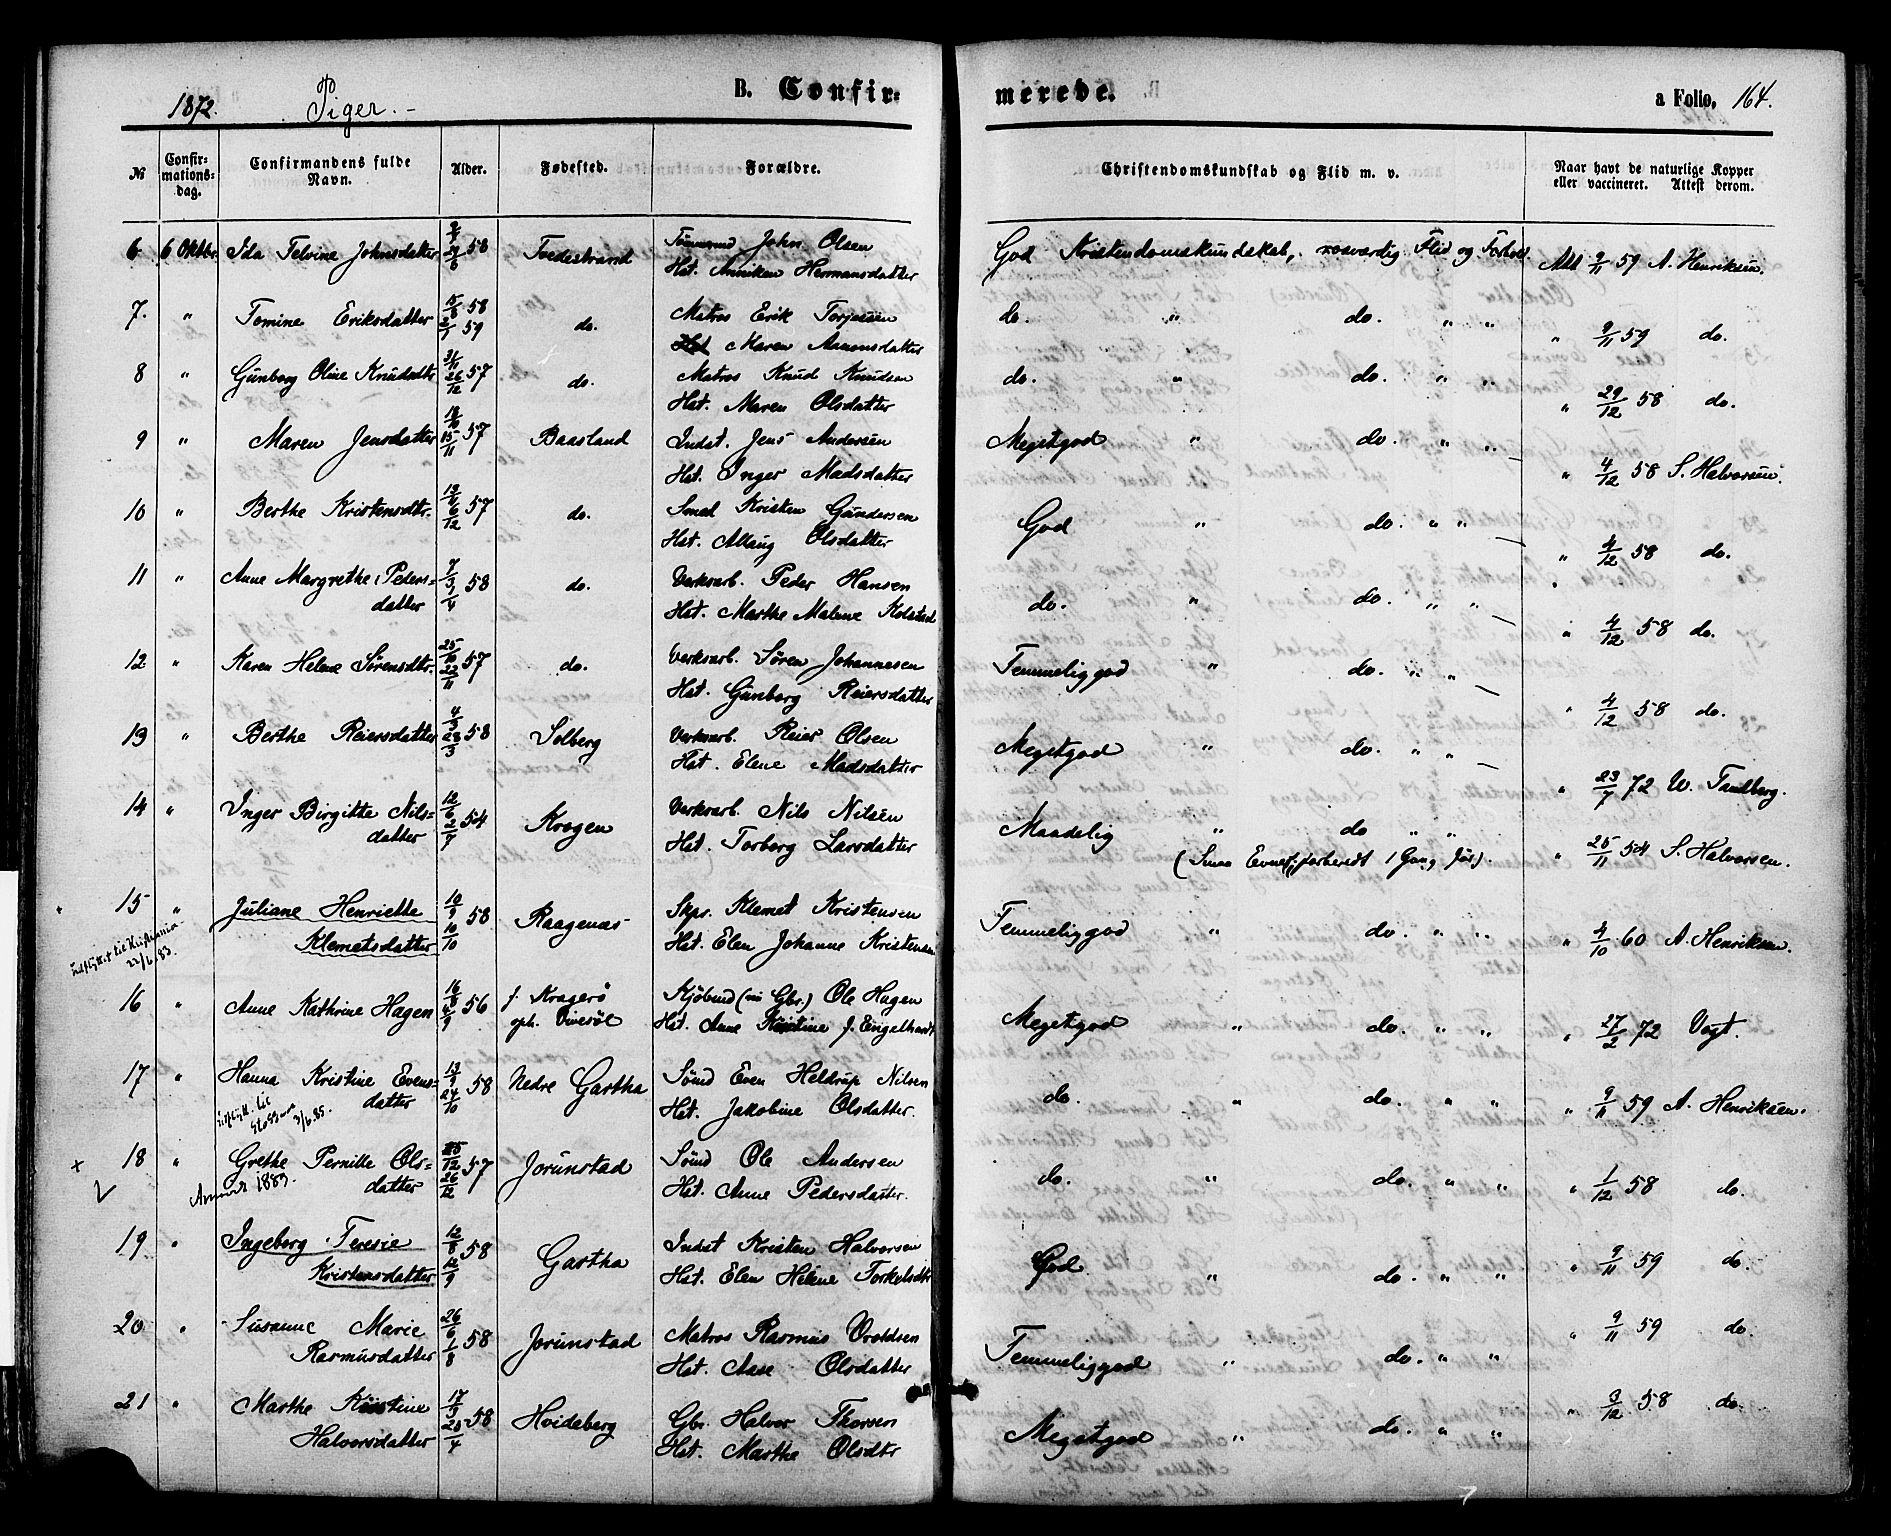 1872. Piger.- B. Confirmerede. a Folio, 164.
№ Confirmationsdag. Confirmandens fulde Navn. Alder. Fødested. Forældre. Christendomskundskab og Flid m. v. Naar havt de naturlige Kopper eller vaccineret. Attest derom.
6 6 Oktbr. Ida Telvine Johnsdatter 58 Tvedestrand Tømmermd John Olsen God Kristendomskundskab, rosværdig Flid og Forhold Att 9/11 59 A. Henriksen.
Hst. Anniken Hermansdatter
7. " Tomine Eriksdatter 15/8 58 do. Matros Erik Torjussen do. " do. " " " 9/11 59 do.
2/1 59 Hst Maren Aamonsdatter
8 " Gunborg Oline Knudsdtr 31/11 26/12 57 do. Matros Knud Knudsen do. " do. " " " 29/12 58 do.
Hst. Maren Olsdatter
9 " Maren Jensdatter 18/10 15/11 57 Baasland Indst. Jens Andersen Megetgod " do. " " " 4/12 58 S. Halvorsen.
Hst. Inger Madsdatter
10 " Berthe Kristensdtr. 6/12 57 do. Smed Kristen Gundersen God " do. " " " 4/12 58 do.
Hst. Allaug Olsdatter
11 " Anne Margrethe Peders= 7/3 58 do. Verksarb. Peder Hansen do. " do. " " " 4/12 58 do.
datter 1/4 Hst. Marthe Malene Kolstad
12 " Karen Helene Sørensdtr. 25/10 22/11 57 do. Verksarb. Søren Johannesen Temmeliggod " do. " " " 4/12 58 do.
Hst. Gunborg Reiersdatter
13 " Berthe Reiersdatter 4/3 23/3 58 Solberg Verksarb. Reier Olsen Megetgod " do. " " " 23/7 72 W. Tandberg.
Hst. Elene Madsdatter
14 " Inger Birgitte Nils= 12/6 2/7 54 Krogen Verksarb. Nils Nilsen Maadelig " do " " " 25/11 54 S. Halvorsen.
datter Hst. Torborg Larsdatter (Smaa Evner, forberedt 1 Gang før).
15 " Juliane Henriette 10/9 10/10 58 Raagenæs Skps. Klemet Kristensen Temmeliggod " do. " " " 4/10 60 A. Henriksen.
Klemetsdatter Hst. Elen Johanne Kristensen
Udflyttet til Kristiania 22/6.83.
16 " Anne Kathrine Hagen 56 f. Kragerø Kjøbmd (nu Gbr.) Ole Hagen Megetgod " do. " " " 27/2 72 Vogt.
oph. Hst. Anne Kristine f. Engelhardt
17 " Hanna Kristine Evens= 13/9 24/10 58 Nedre Gartha Sømd Even Heldrup Nilsen do. " do. " " " 9/11 59 A. Henriksen.
datter Hst. Jakobine Olsdatter.
3/6.85.
x 18 " Grethe Pernille Ols= 26/12 57 Jorunstad Sømd Ole Andersen do. " do. " " " 1/12 58 do.
datter Hst. Anne Pedersdatter.
1883.
19 " Ingeborg Teresie 12/8 12/9 58 Gartha Indst Kristen Halvorsen God " do. " " " 9/11 59 do.
Kristensdatter Hst. Elen Helene Torkelsdtr
20 " Susanne Marie 26/6 1/8 58 Jorunstad Matros Rasmus Oroldsen Temmeliggod " do. " " " 9/11 59 do.
Rasmusdatter Hst. Aase Olsdatter
21 " Marthe Kristine 58 Hvideberg Gbr. Halvor Thorsen Megetgod " do. " " " 3/12 58 do.
Halvorsdatter Hst. Marthe Olsdtr